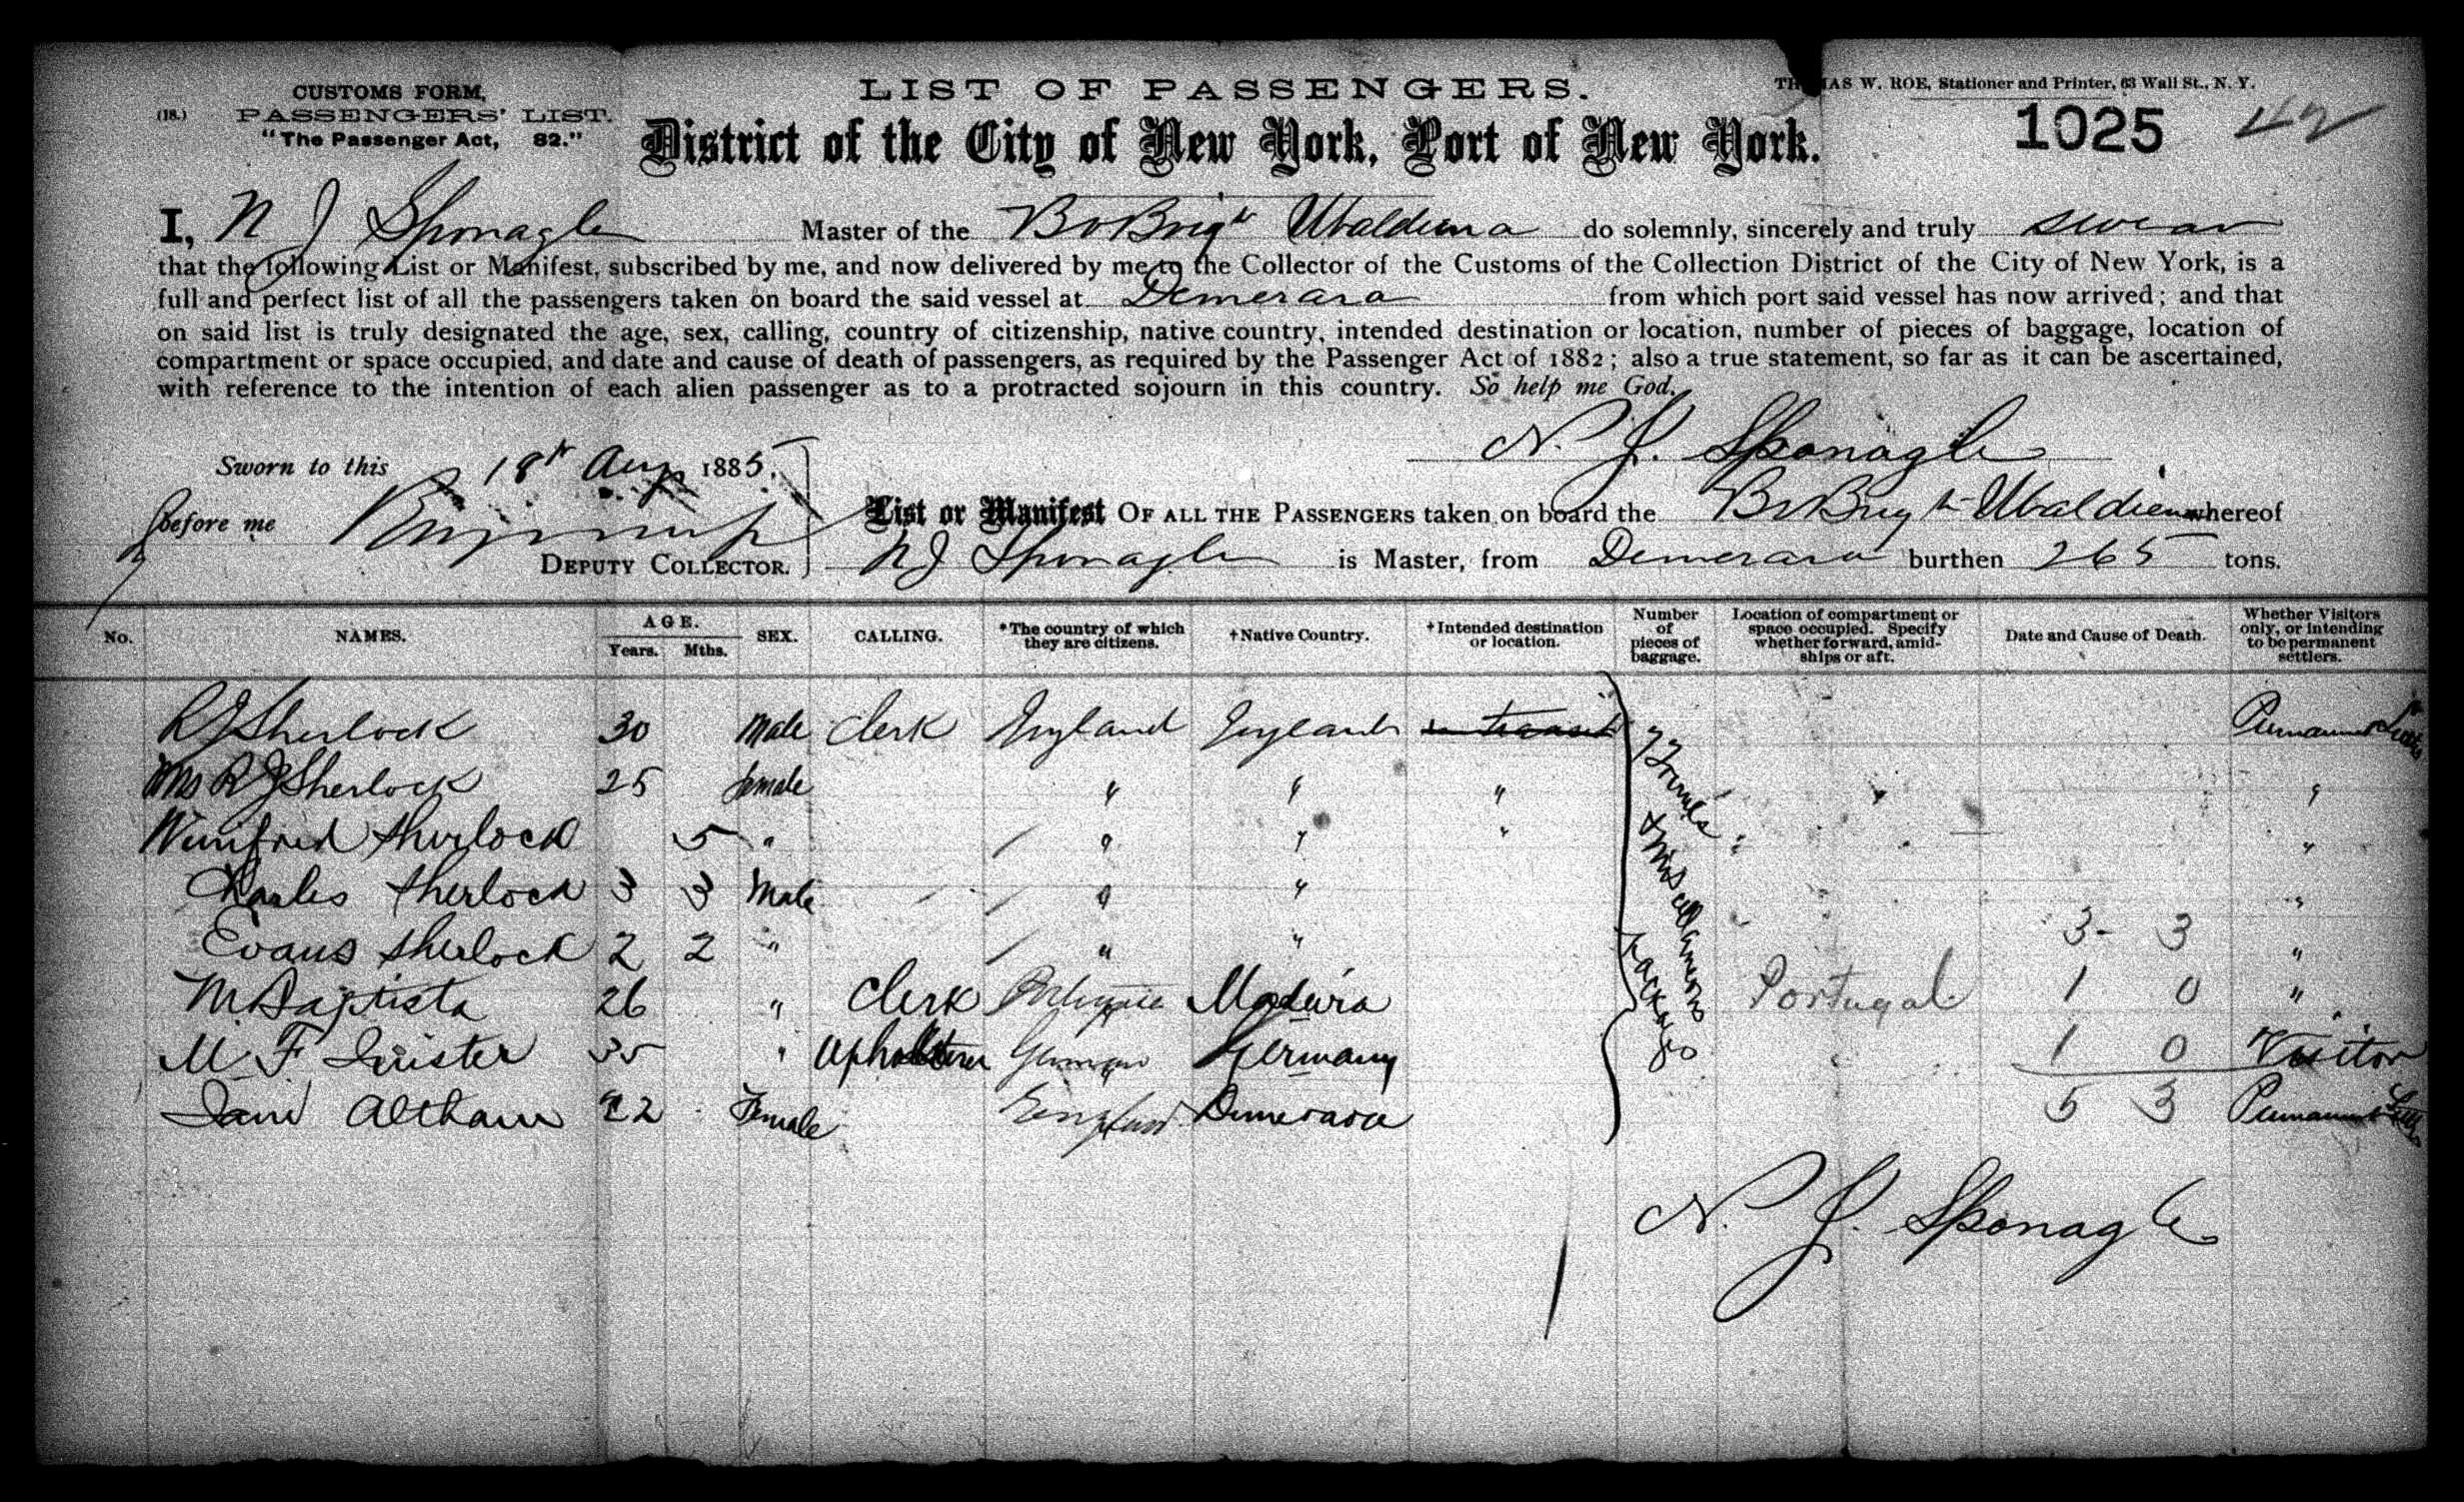 CUSTOMS FORM,
(18.) PASSENGERS' LIST.
"The Passenger Act, 82."
LIST OF PASSENGERS.
District of the City of New York, Port of New York.
THOMAS W. ROE, Stationer and Printer, 63 Wall St., N. Y.
1025 42
I, N J Sponagle Master of the Br Brigt Ubaldina do solemnly, sincerely and truly swear
that the following List or Manifest, subscribed by me, and now delivered by me to the Collector of the Customs of the Collection District of the City of New York, is a
full and perfect list of all the passengers taken on board the said vessel at Demerara from which port said vessel has now arrived; and that
on said list is truly designated the age, sex, calling, country of citizenship, native country, intended destination or location, number of pieces of baggage, location of
compartment or space occupied, and date and cause of death of passengers, as required by the Passenger Act of 1882; also a true statement, so far as it can be ascertained,
with reference to the intention of each alien passenger as to a protracted sojourn in this country. So help me God.
N. J. Sponagle
Sworn to this 18th Aug 1885.
before me
DEPUTY COLLECTOR.
List or Manifest OF ALL THE PASSENGERS taken on board the Br Brigt Ubaldina whereof
N J Sponagle is Master, from Demerara burthen 265 tons.
No. NAMES. AGE. Years. Mths. SEX. CALLING. *The country of which they are citizens. †Native Country. †Intended destination or location. Number of pieces of baggage. Location of compartment or space occupied. Specify whether forward, amidships or aft. Date and Cause of Death. Whether Visitors only, or intending to be permanent settlers.
R J Sherlock 30 Male Clerk England England in transit Permanent
Mrs R J Sherlock 25 female " " " "
Winifred Sherlock 5 " " " " "
Charles Sherlock 3 3 Male " " "
Evans Sherlock 2 2 " " " 3- 3 "
M Baptista 26 " Clerk Madeira Portugal 1 0 "
M. F. 35 " Upholsterer German Germany 1 0 Visitor
Altham 22 Female England Demerara 5 3 Permanent
7 Trunks & Miscellaneous Packages
N. J. Sponagle